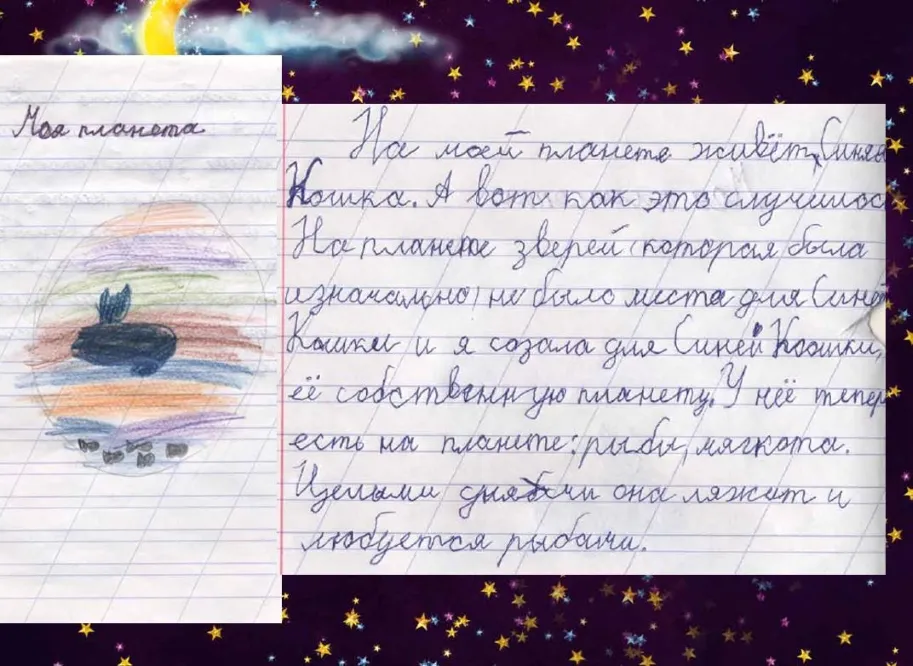 Моя планета
На моей планете живёт Синяя
Кошка. А вот как это случилос
На планете зверей (которая была
изначально) не было места для Синей
Кошки и я созала для Синей Коошки,
её собственную планету. У неё тепер
есть на планете: рыбы, мягкота.
Целыми днями она ляжит и
любуется рыбами.